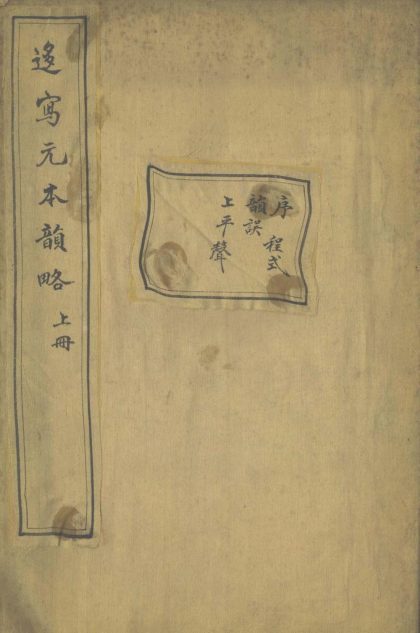 迻寫元本韻略 上冊
序 程式
韻誤
上平聲